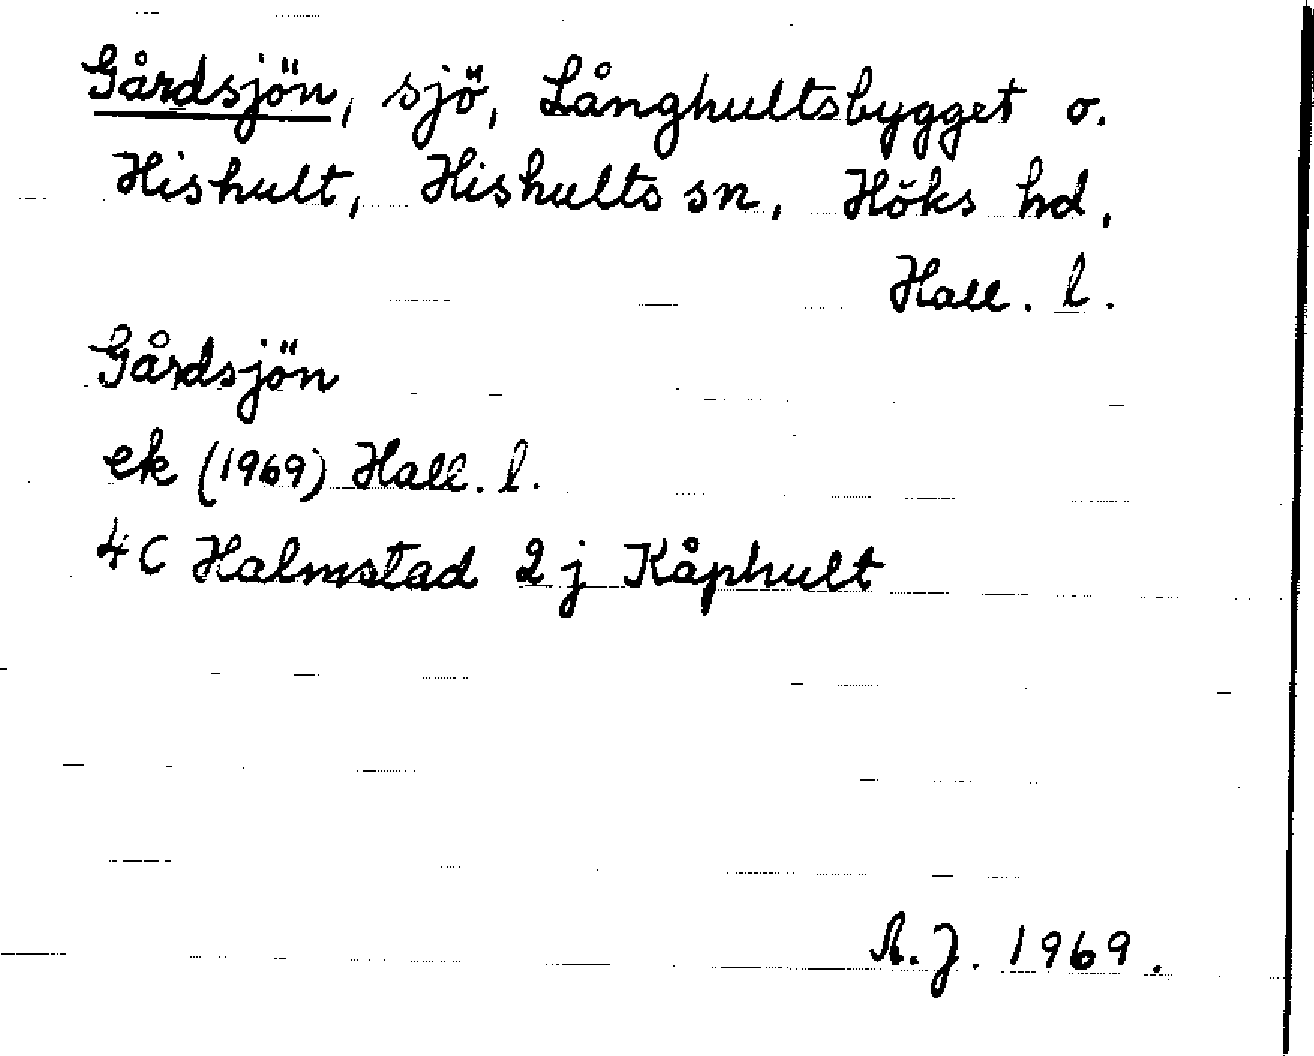 Gårdsjön, sjö, Långhultsbygget o.
Hishult, Hishults sn, Höks hd,
Hall. l.
Gårdsjön
ek (1969) Hall. l.
4C Halmstad 2j Kåphult
A.J. 1969.